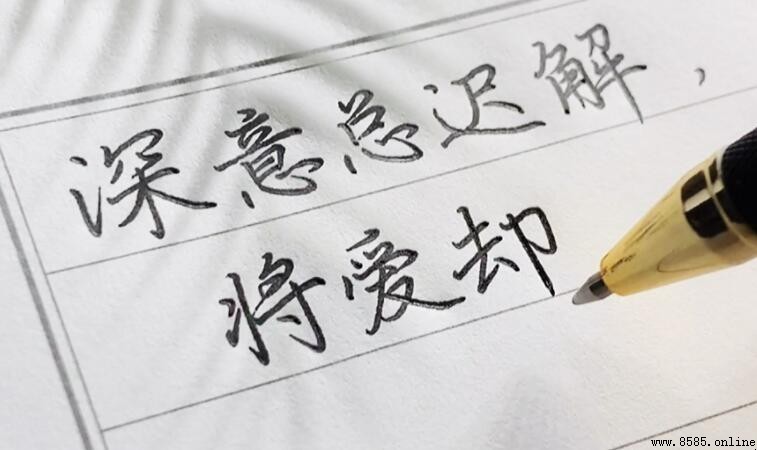 深意总迟解，
将爱却
www.8585.online